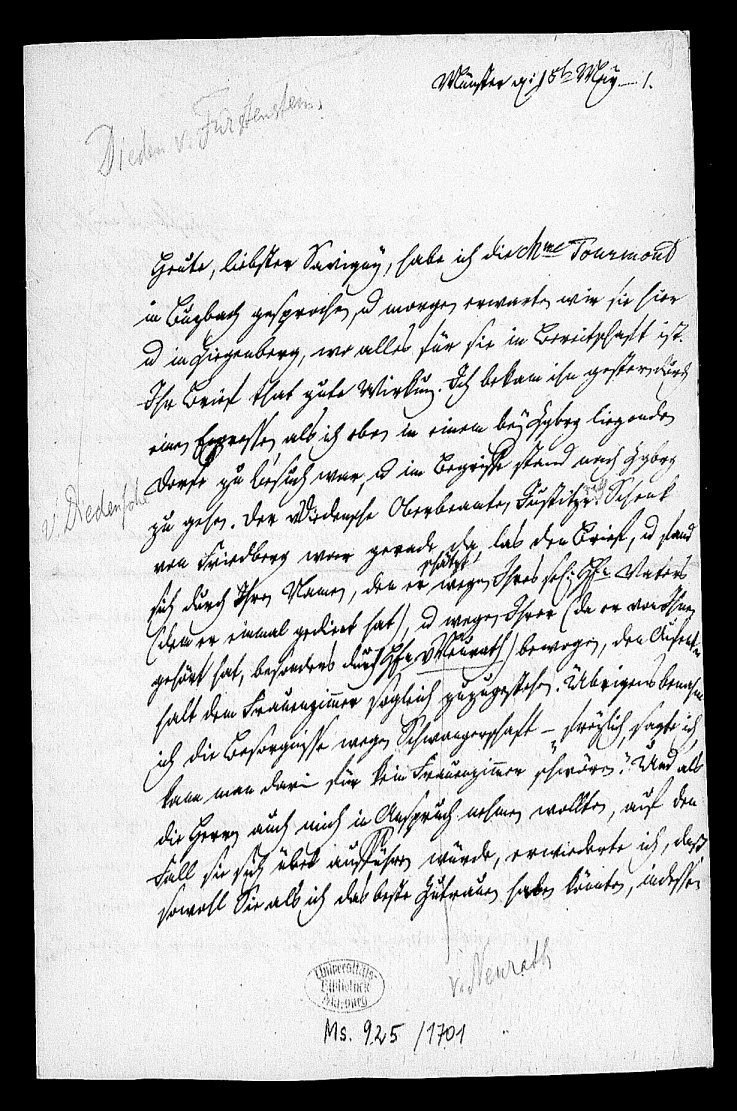 Münster d. 15t May
Dieden v. Fürstenstein.
Heute, liebster Savigny, habe ich die Mme Tourmont
in Butzbach gesprochen, u morgen erwarten wir sie hier
u in Ziegenberg, wo alles für sie in Bereitschaft ist.
Ihr Brief that gute Wirkung. Ich bekam ihn gestern durch
einen Expressen, als ich eben in einem bei liegenden
Dorfe zu Besuch war, u im Begriffe stand nach
zu gehen. Der Diedensche Oberbeamte, Schenk
v. Diedensche
von Friedberg war gerade da, las den Brief, u fand
sich durch Ihren Namen, den er schätzt wegen Ihres sel. Hn Vaters
(dem er einmal gedient hat), u wegen Ihrer (da er von Ihnen
gehört hat, besonders durch Hn v Neurath) bewogen, den Aufent-
halt dem Frauenzimmer sogleich zuzugestehen. Übrigens benahm
ich die Besorgnisse wegen Schwangerschaft – freylich, sagte ich,
kann man darin für kein Frauenzimmer schwören. Und als
die Herrn auch mich in Anspruch nehmen wollten, auf den
Fall sie sich übel aufführen würde, erwiederte ich, daß
sowohl Sie als ich das beste Zutrauen haben könnten, indessen
v. Neurath
Universitäts-
Bibliothek
Marburg
Ms. 925/1701